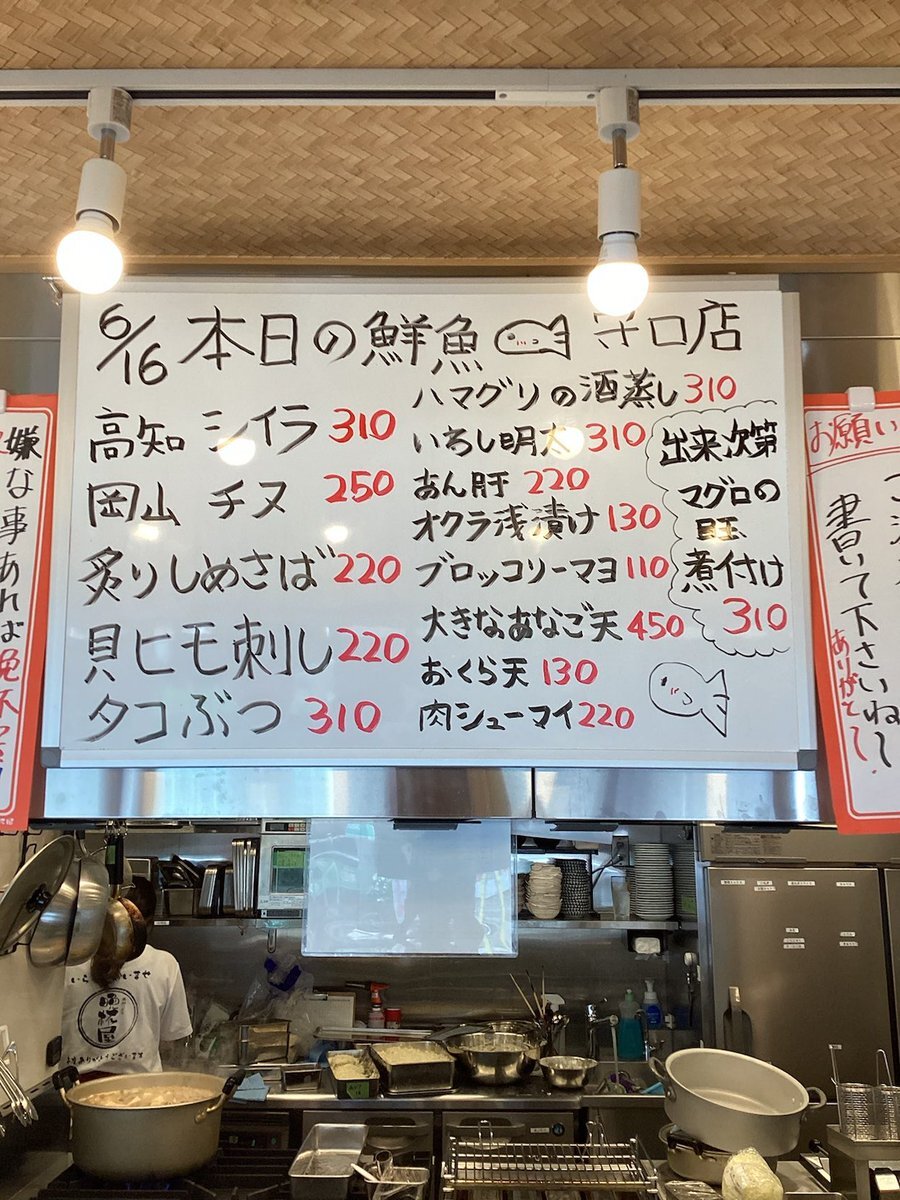 6/16 本日の鮮魚 守口店
高知 シイラ 310
岡山 チヌ 250
炙りしめさば 220
貝ヒモ刺し 220
タコぶつ 310
ハマグリの酒蒸し 310
いわし明太 310
あん肝 220
オクラ浅漬け 130
ブロッコリーマヨ 110
大きなあなご天 450
おくら天 130
肉シューマイ 220
出来次第
マグロの
目玉
煮付け
310
嫌な事あれば
お願い
書いて下さいね
ありがとう